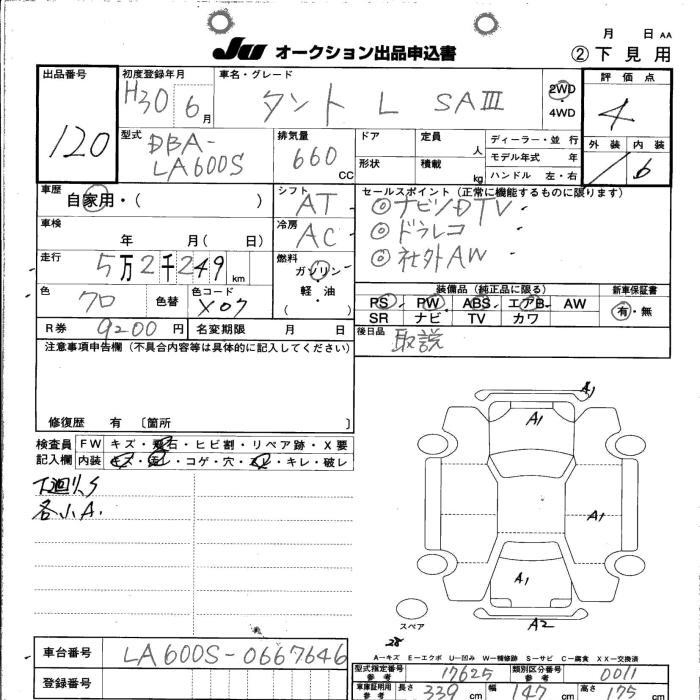 月 日 AA
JU オークション出品申込書 ②下見用
出品番号 120
初度登録年月 H30 6月
車名・グレード タント L SAⅢ
2WD・4WD
評価点 4
外装 内装 6
型式 DBA-LA600S
排気量 660 CC
ドア
形状
定員 人
積載 kg
ディーラー・並行
モデル年式 年
ハンドル 左・右
車歴 自家用・( )
シフト AT
セールスポイント (正常に機能するものに限ります)
◎ナビソDTV
◎ドラレコ
◎社外AW
車検 年 月( 日)
冷房 AC
走行 5万2千249km
燃料 ガソリン・軽・油 ( )
装備品 (純正品に限る) 新車保証書
PS PW ABS エアB AW 有・無
SR ナビ TV カワ
色 クロ 色替
色コード X07
R券 9200円 名変期限 月 日
後日品 取説
注意事項申告欄 (不具合内容等は具体的に記入してください)
修復歴 有 〔箇所 〕
検査員記入欄
FW キズ・飛石・ヒビ割・リペア跡・X要
内装 キズ・汚レ・コゲ・穴・スレ・キレ・破レ
下廻りS
各小A.
A1
A1
A1
A1
A2
スペア
28
A-キズ E-エクボ U-凹み W-補修跡 S-サビ C-腐食 XX-交換済
車台番号 LA600S-0667646
登録番号
型式指定番号 参考 17625 類別区分番号 参考 0011
車庫証明用 参考 長さ 339 cm 幅 147 cm 高さ 175 cm